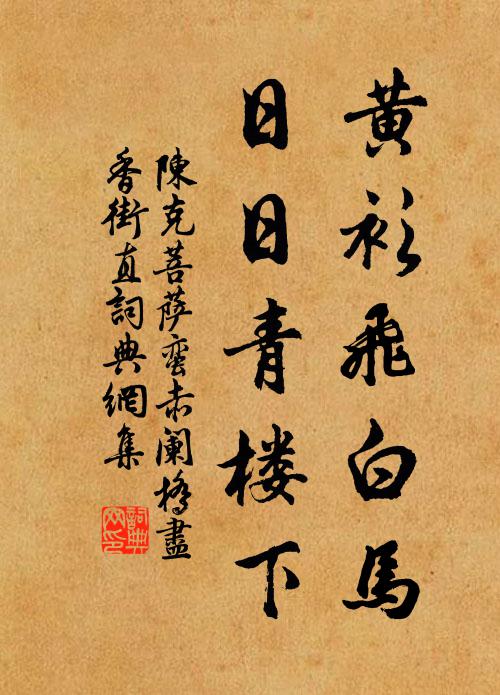 黄衫飛白馬
日日青楼下
陳克菩薩蛮赤闌橋盡
香街直詞典網集
詞典